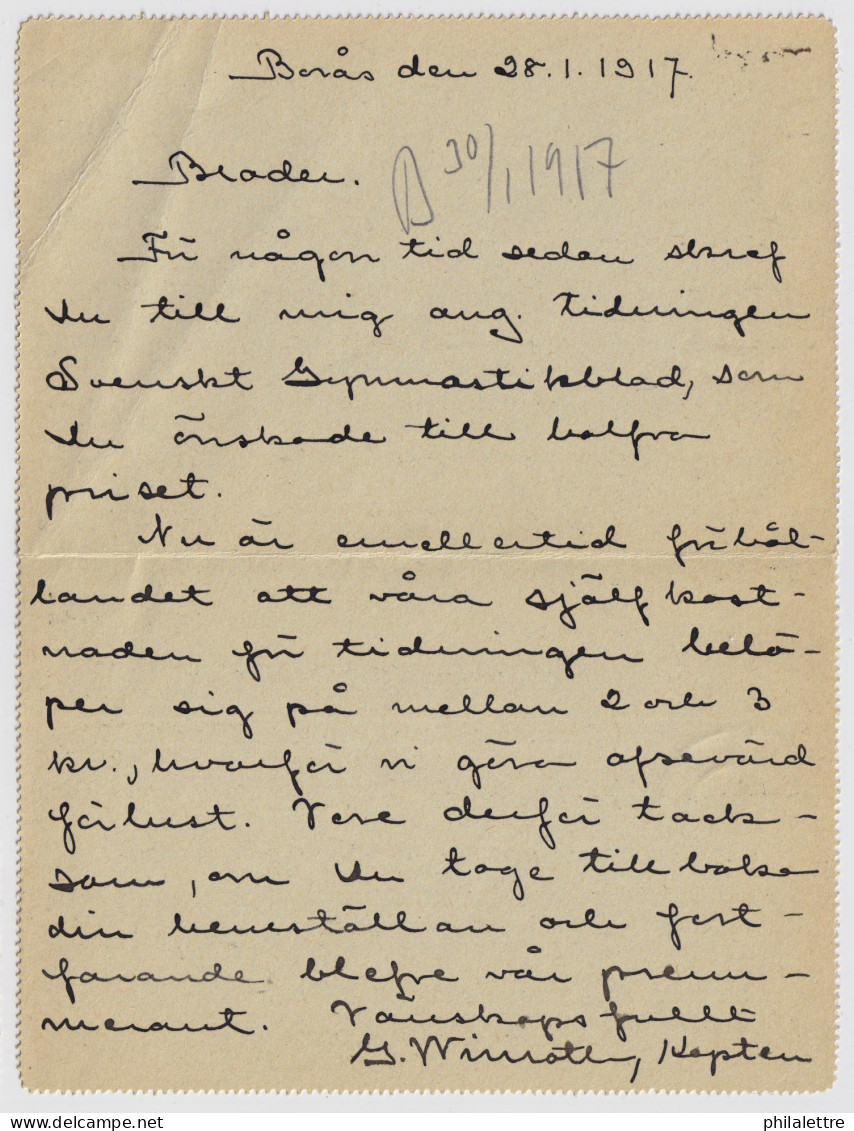 Borås den 28.1.1917.
Broder.
B 30/1 1917
För någon tid sedan skref
Du till mig ang. tidningen
Svenskt Gymnastikblad, som
Du önskade till halfva
priset.
Nu är emellertid förhål-
landet att våra självkost-
naden för tidningen belö-
per sig på mellan 2 och 3
kr., hvarför vi göra afsevärd
förlust. Vore derför tack-
sam, om Du toge tillbaka
din hemställan och fort-
farande blefve vår prenu-
merant. Vänskapsfullt
G. Kapten
philalettre